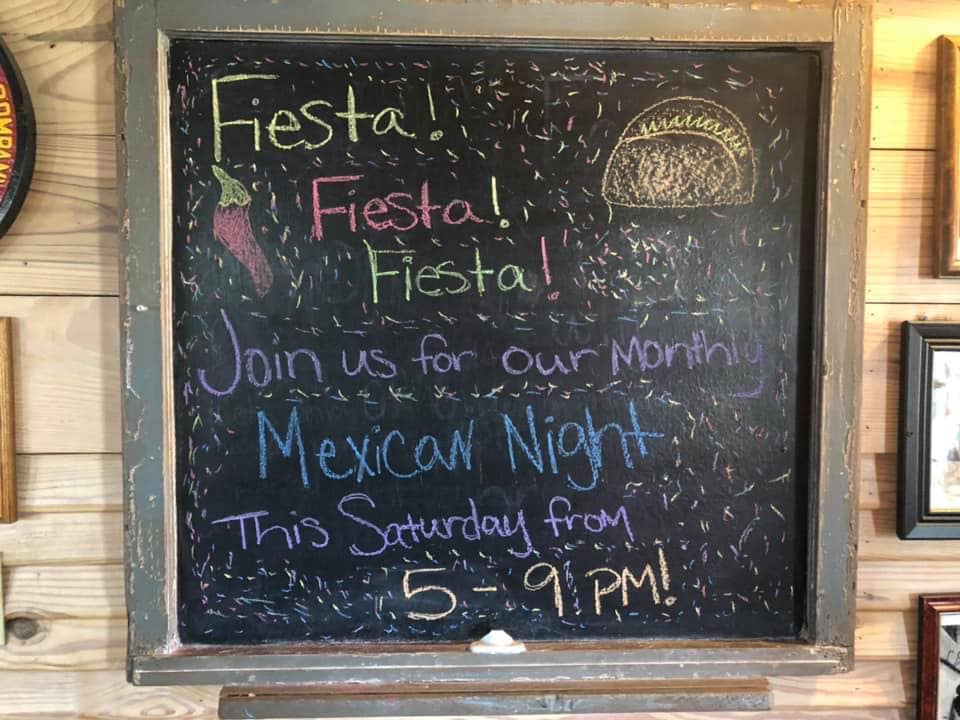 Fiesta!
Fiesta!
Fiesta!
Join us for our Monthly
Mexican Night
This Saturday from
5-9 PM!